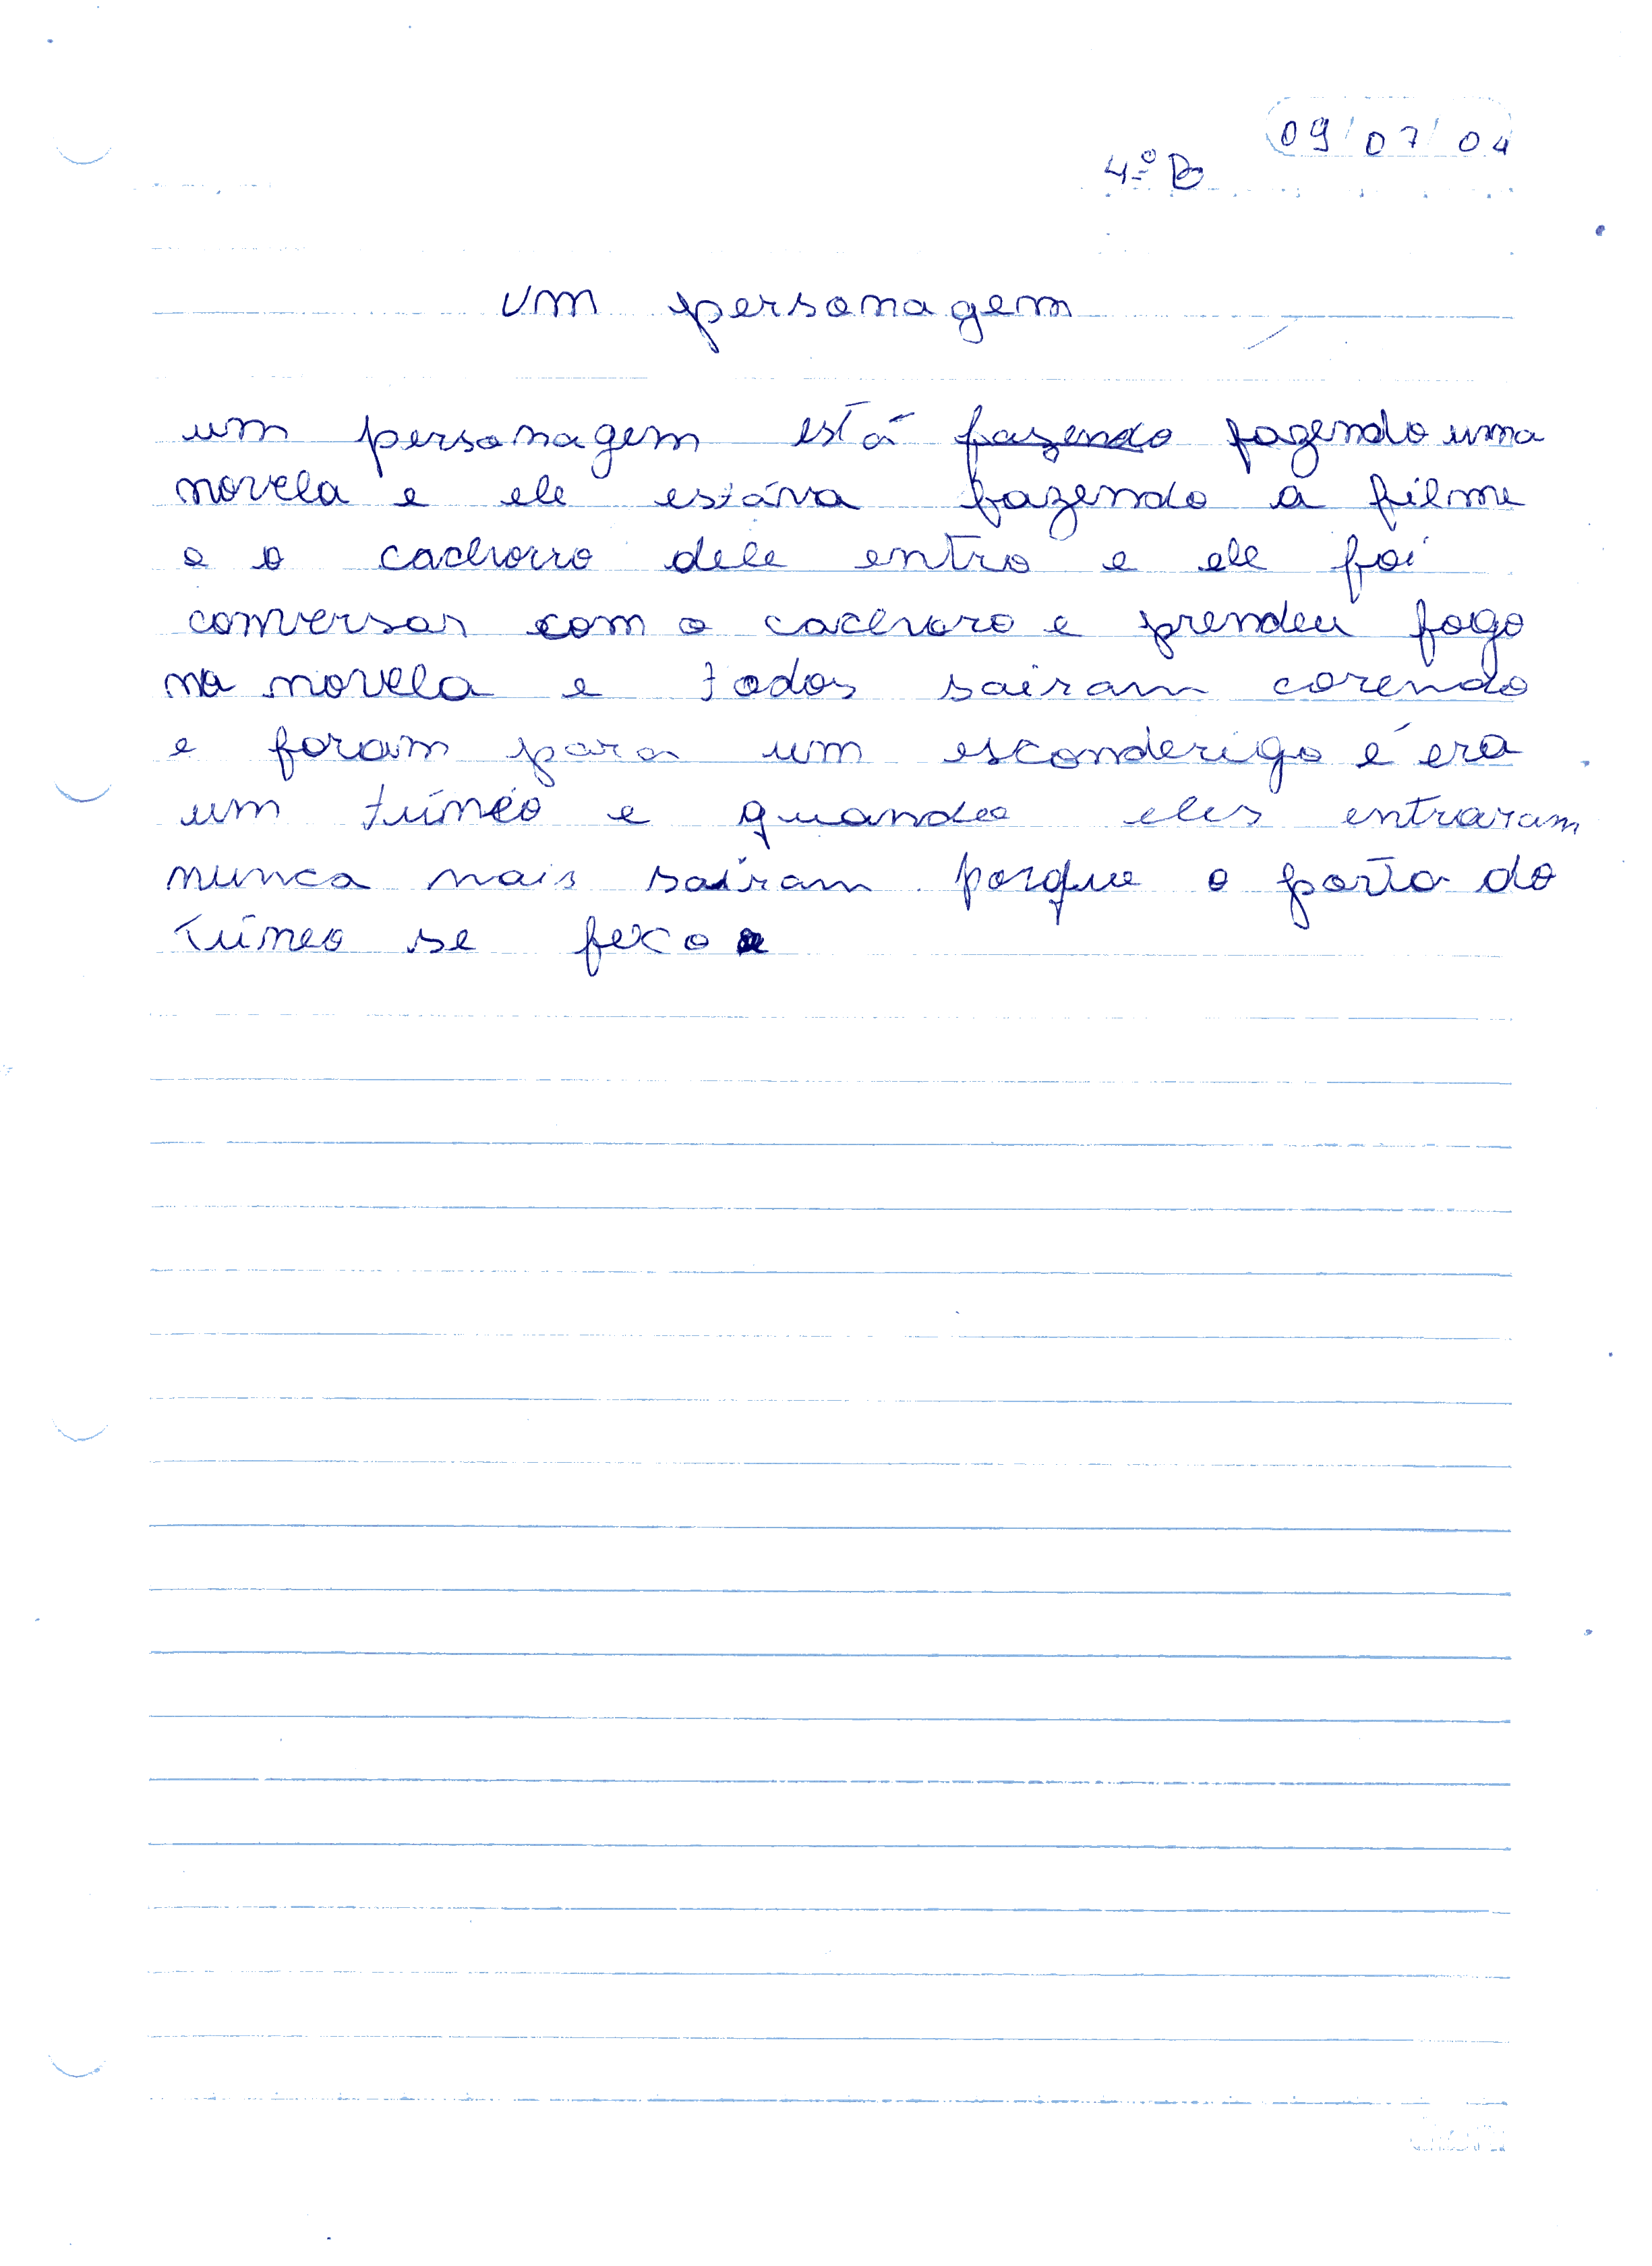 09/07/04
4º B
um personagem
um personagem está fazendo fazendo uma
novela e ele estáva fazendo a filme
e o cachorro dele entro e ele foi
conversar com o cachoro e prendeu fogo
na novela e todos sairam corendo
e foram para um esconderigo é era
um túneo e quando eles entraram
nunca mais sairam porque a porta do
túneo se fexo